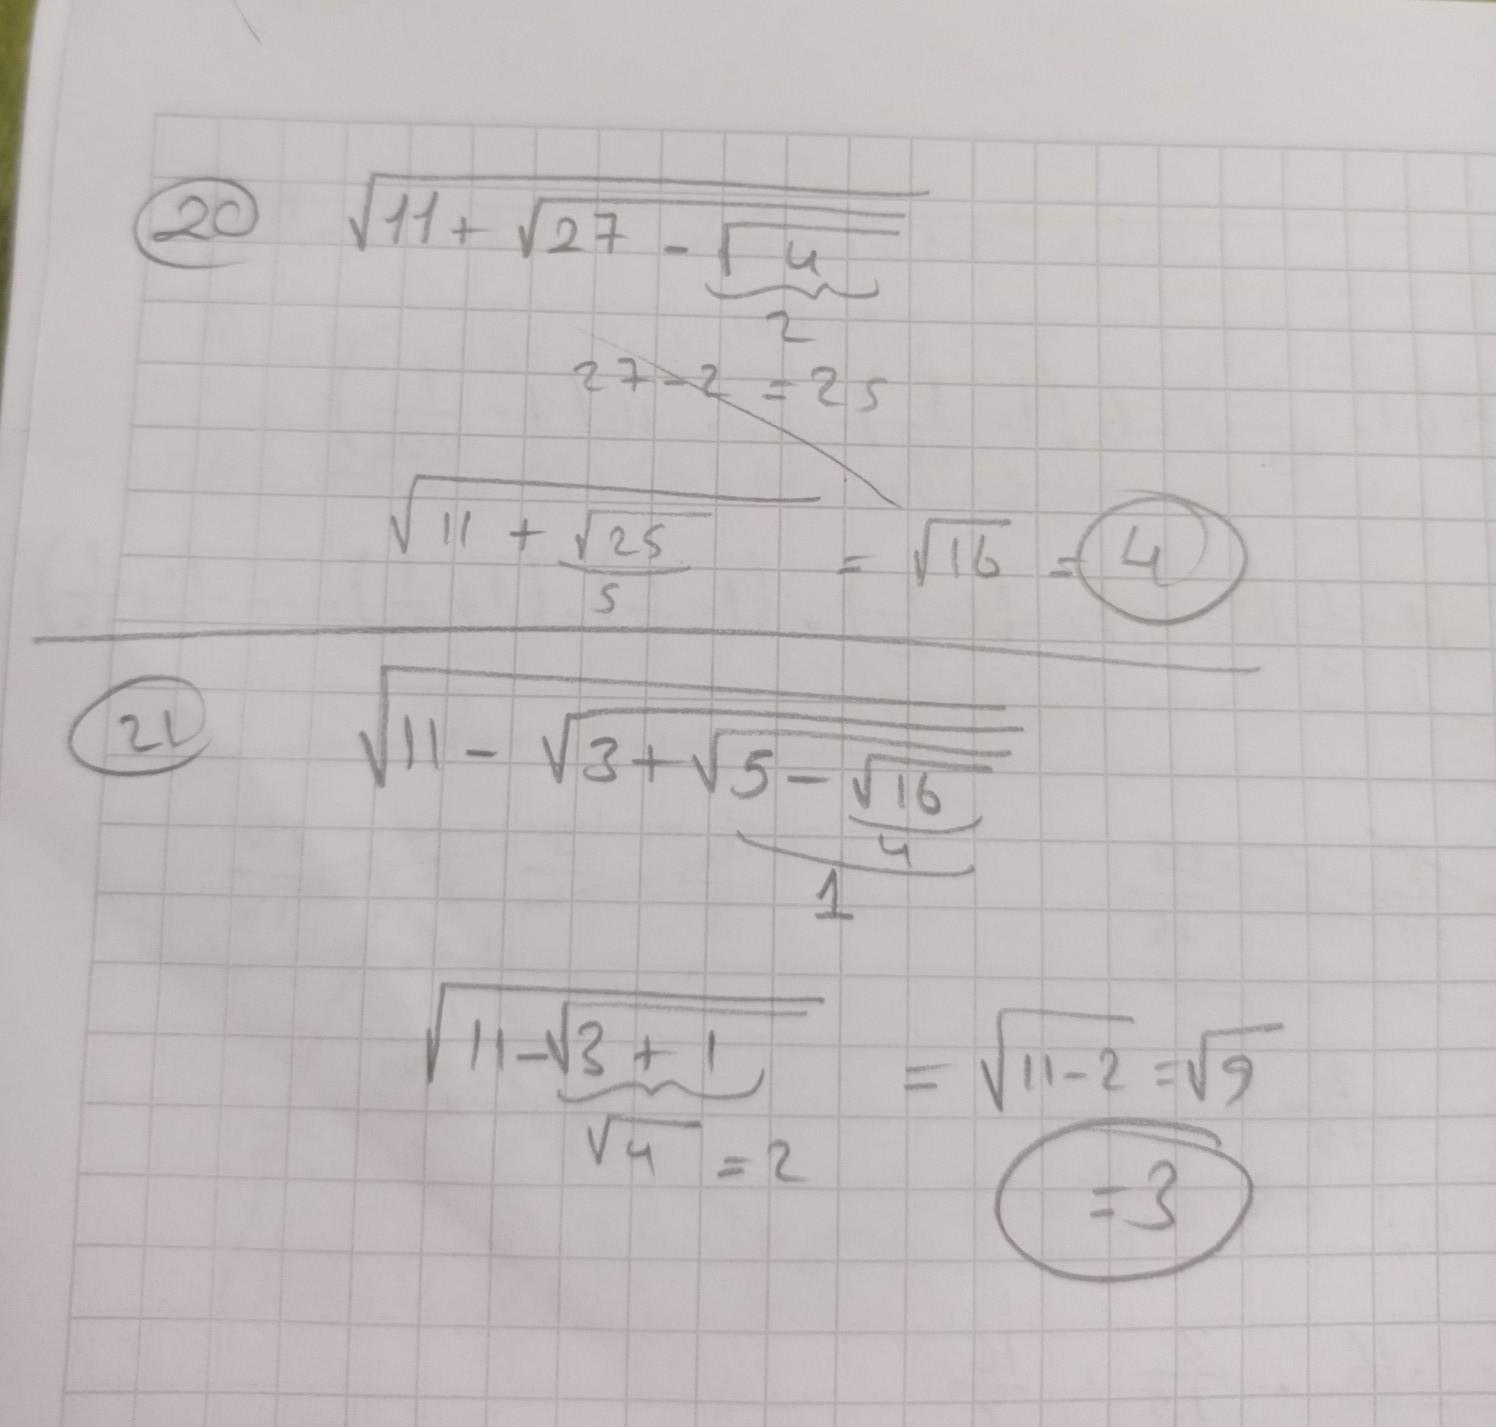 20 √(11 + √(27 - √4))
2
27 - 2 = 25
√(11 + √25) = √16 = 4
5
21 √(11 - √(3 + √(5 - √16)))
4
1
√(11 - √(3 + 1)) = √(11 - 2) = √9
√4 = 2
= 3